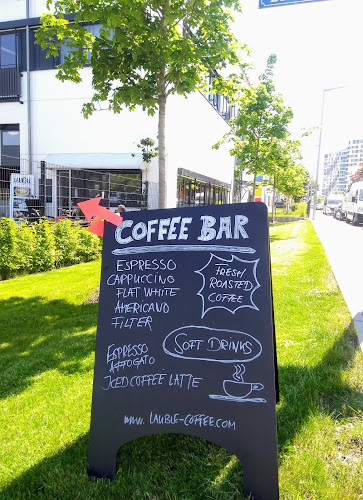 COFFEE BAR
ESPRESSO
CAPPUCCINO
FLAT WHITE
AMERICANO
FILTER
FRESH
ROASTED
COFFEE
SOFT DRINKS
ESPRESSO
AFFOGATO
ICED COFFEE LATTE
www.LAUBLE-COFFEE.COM